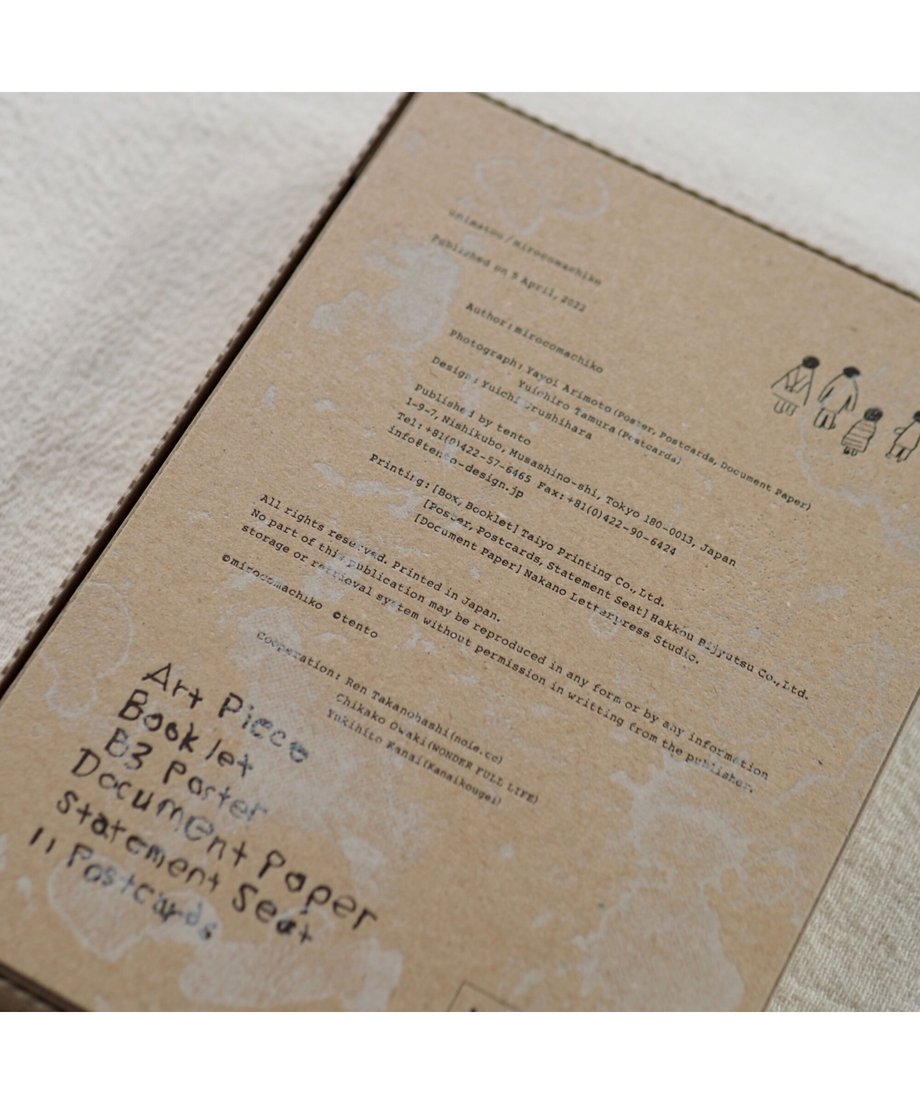 unimatou/mirocomachiko
Published on 5 April, 2022
Author:mirocomachiko
Photograph:Yayoi Arimoto(Poster, Postcards, Document Paper)
Yuichiro Tamura(Postcards)
Design:Yuichi Urushihara
Published by tento
1-9-7, Nishikubo, Musashino-shi, Tokyo 180-0013, Japan
Tel:+81(0)422-57-6465 Fax:+81(0)422-90-6424
info@tento-design.jp
Printing:[Box, Booklet] Taiyo Printing Co.,Ltd.
[Poster, Postcards, Statement Seat] Hakkou Bijyutsu Co.,Ltd.
[Document Paper] Nakano Letterpress Studio.
All rights reserved. Printed in Japan.
No part of this publication may be reproduced in any form or by any information
storage or retrieval system without permission in writting from the publisher.
©mirocomachiko ©tento
Cooperation: Ren Takanohashi(noie.cc)
Chikako Owaki(WONDER FULL LIFE)
Yukihito Kanai(Kanaikougei)
Art Piece
Booklet
B3 Poster
Document Paper
Statement Seat
11 Postcards